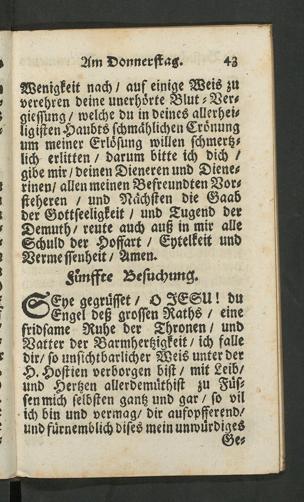 Am Donnerstag. 43
Wenigkeit nach / auf einige Weis zu
verehren deine unerhörte Blut-Ver-
giessung / welche du in deines allerhei-
ligisten Haubts schmählichen Crönung
um meiner Erlösung willen schmertz-
lich erlitten / darum bitte ich dich /
gibe mir / deinen Dieneren und Diene-
rinen / allen meinen Befreundten Vor-
steheren / und Nächsten die Gaab
der Gottseeligkeit / und Tugend der
Demuth / reute auch auß in mir alle
Schuld der Hoffart / Eytelkeit und
Vermessenheit / Amen.
Fünffte Besuchung.
SEye gegrüsset / O JESU! du
Engel deß grossen Raths / eine
fridsame Ruhe der Thronen / und
Vatter der Barmhertzigkeit / ich falle
dir / so unsichtbarlicher Weis unter der
H. Hostien verborgen bist / mit Leib /
und Hertzen allerdemüthist zu Füs-
sen mich selbsten gantz und gar / so vil
ich bin und vermag / dir aufopfferend /
und fürnemblich dises mein unwürdiges
Ge-